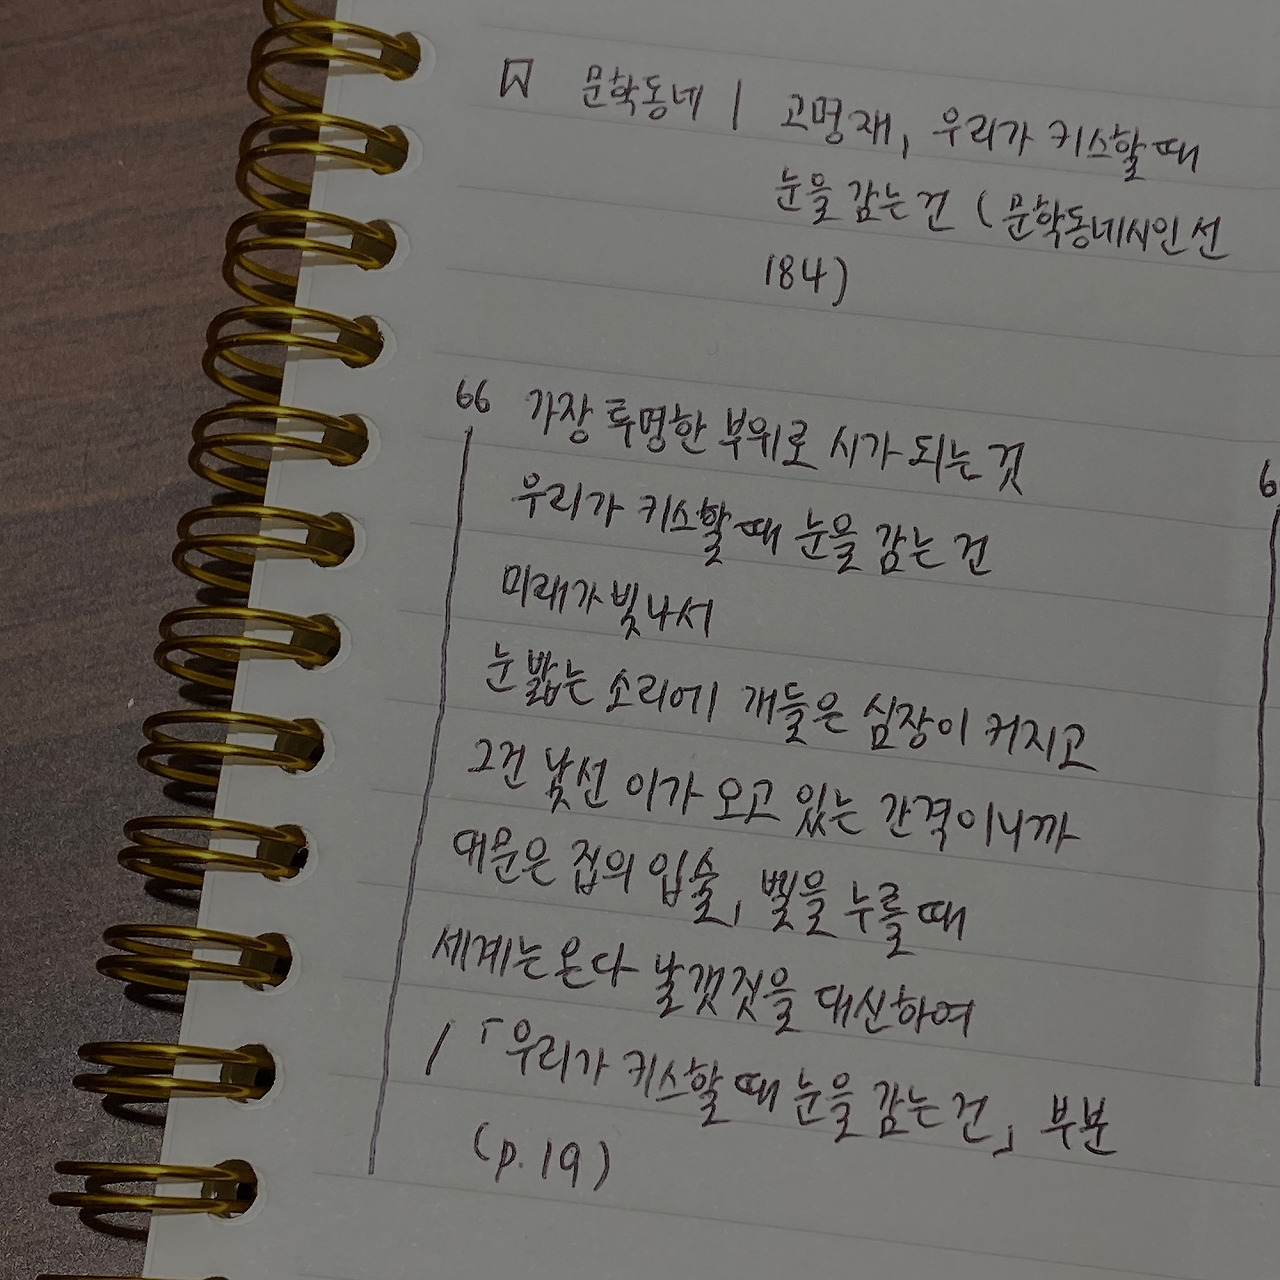 문학동네 | 고명재, 우리가 키스할 때
눈을 감는 건 (문학동네시인선
184)
66 가장 투명한 부위로 시가 되는 것
6
우리가 키스할 때 눈을 감는 건
미래가 빛나서
눈 밟는 소리에 개들은 심장이 커지고
그건 낯선 이가 오고 있는 간격이니까
대문은 집의 입술, 벨을 누를 때
세계는 온다 날갯짓을 대신하여
/ 「우리가 키스할 때 눈을 감는 건」 부분
(p.19)